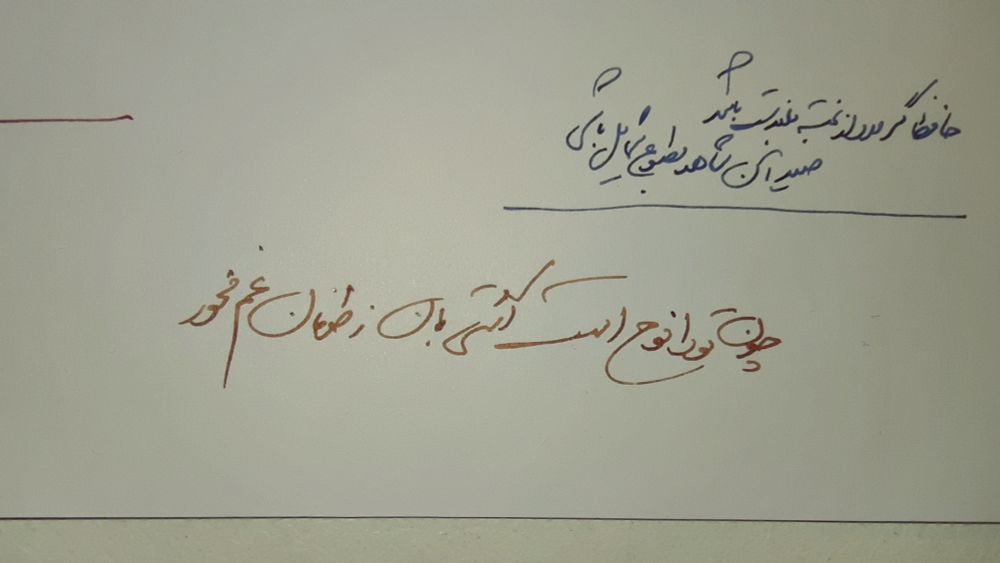 حافظا گر مدد از بخت بلندت باشد
صید آن شاهد مطبوع شمایل باشی
چون تورا نوح است کشتی بان ز طوفان غم مخور